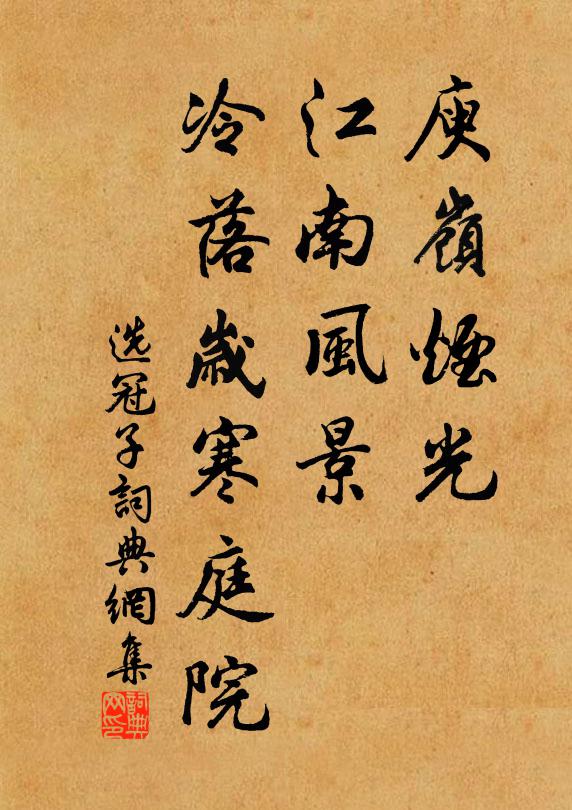 庾嶺煙光
江南風景
冷落歲寒庭院
选冠子詞典網集
詞典网印